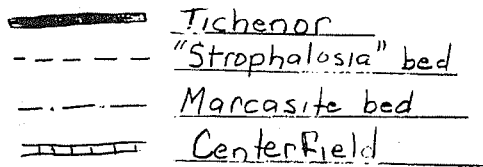 Tichenor
"Strophalosia" bed
Marcasite bed
Centerfield